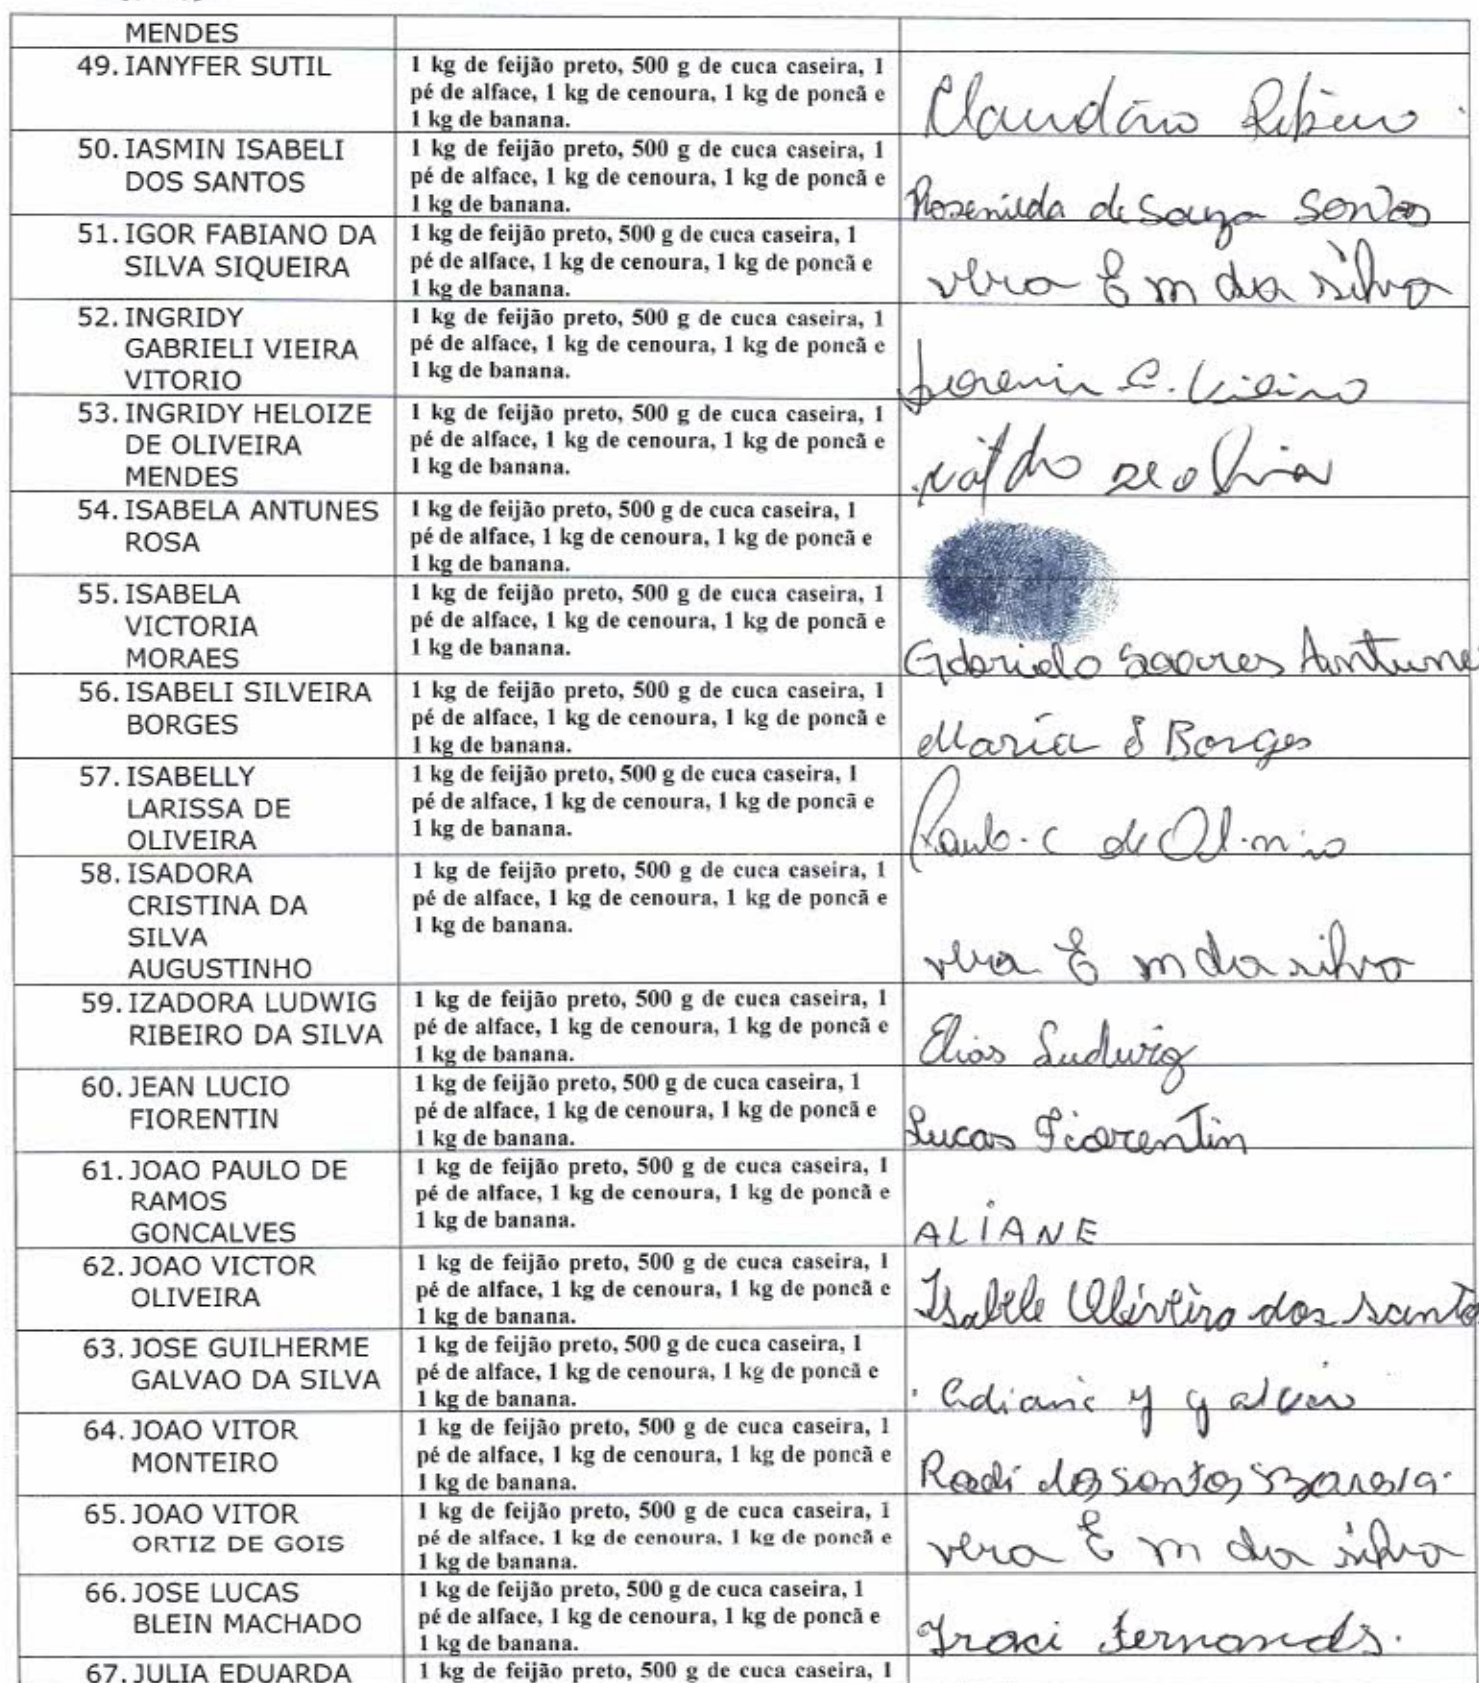 MENDES
49. IANYFER SUTIL
1 kg de feijão preto, 500 g de cuca caseira, 1
pé de alface, 1 kg de cenoura, 1 kg de poncã e
1 kg de banana.
50. IASMIN ISABELI
DOS SANTOS
1 kg de feijão preto, 500 g de cuca caseira, 1
pé de alface, 1 kg de cenoura, 1 kg de poncã e
1 kg de banana.
Rosenilda de Souza
51. IGOR FABIANO DA
SILVA SIQUEIRA
1 kg de feijão preto, 500 g de cuca caseira, 1
pé de alface, 1 kg de cenoura, 1 kg de poncã e
1 kg de banana.
vera E m da silva
52. INGRIDY
GABRIELI VIEIRA
VITORIO
1 kg de feijão preto, 500 g de cuca caseira, 1
pé de alface, 1 kg de cenoura, 1 kg de poncã e
1 kg de banana.
53. INGRIDY HELOIZE
DE OLIVEIRA
MENDES
1 kg de feijão preto, 500 g de cuca caseira, 1
pé de alface, 1 kg de cenoura, 1 kg de poncã e
1 kg de banana.
54. ISABELA ANTUNES
ROSA
1 kg de feijão preto, 500 g de cuca caseira, 1
pé de alface, 1 kg de cenoura, 1 kg de poncã e
1 kg de banana.
55. ISABELA
VICTORIA
MORAES
1 kg de feijão preto, 500 g de cuca caseira, 1
pé de alface, 1 kg de cenoura, 1 kg de poncã e
1 kg de banana.
Soares Antunes
56. ISABELI SILVEIRA
BORGES
1 kg de feijão preto, 500 g de cuca caseira, 1
pé de alface, 1 kg de cenoura, 1 kg de poncã e
1 kg de banana.
Maria S Borges
57. ISABELLY
LARISSA DE
OLIVEIRA
1 kg de feijão preto, 500 g de cuca caseira, 1
pé de alface, 1 kg de cenoura, 1 kg de poncã e
1 kg de banana.
Paulo. C de
58. ISADORA
CRISTINA DA
SILVA
AUGUSTINHO
1 kg de feijão preto, 500 g de cuca caseira, 1
pé de alface, 1 kg de cenoura, 1 kg de poncã e
1 kg de banana.
vera E m da silva
59. IZADORA LUDWIG
RIBEIRO DA SILVA
1 kg de feijão preto, 500 g de cuca caseira, 1
pé de alface, 1 kg de cenoura, 1 kg de poncã e
1 kg de banana.
Elias Ludwig
60. JEAN LUCIO
FIORENTIN
1 kg de feijão preto, 500 g de cuca caseira, 1
pé de alface, 1 kg de cenoura, 1 kg de poncã e
1 kg de banana.
Lucas Fiorentin
61. JOAO PAULO DE
RAMOS
GONCALVES
1 kg de feijão preto, 500 g de cuca caseira, 1
pé de alface, 1 kg de cenoura, 1 kg de poncã e
1 kg de banana.
ALIANE
62. JOAO VICTOR
OLIVEIRA
1 kg de feijão preto, 500 g de cuca caseira, 1
pé de alface, 1 kg de cenoura, 1 kg de poncã e
1 kg de banana.
Isabele Oliveira dos santos
63. JOSE GUILHERME
GALVAO DA SILVA
1 kg de feijão preto, 500 g de cuca caseira, 1
pé de alface, 1 kg de cenoura, 1 kg de poncã e
1 kg de banana.
64. JOAO VITOR
MONTEIRO
1 kg de feijão preto, 500 g de cuca caseira, 1
pé de alface, 1 kg de cenoura, 1 kg de poncã e
1 kg de banana.
dos santos
65. JOAO VITOR
ORTIZ DE GOIS
1 kg de feijão preto, 500 g de cuca caseira, 1
pé de alface, 1 kg de cenoura, 1 kg de poncã e
1 kg de banana.
vera E m da silva
66. JOSE LUCAS
BLEIN MACHADO
1 kg de feijão preto, 500 g de cuca caseira, 1
pé de alface, 1 kg de cenoura, 1 kg de poncã e
1 kg de banana.
Iraci
67. JULIA EDUARDA
1 kg de feijão preto, 500 g de cuca caseira, 1